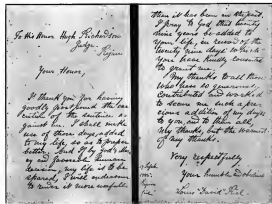 To His Honor Hugh Richardson
Judge.
Regina
Your Honor,
I thank you for having
goodly postponed the exe
cution of the sentence
against me. I shall make
use of those days added
to my life, so as to prepare
better. And if by God's mer
cy and favorable human
decision, my life is to be
spared, I will endeavor
to render it more useful
than it has been in the past.
I pray to God that twenty
nine years be added to
your life, in reward of the
twenty nine days which
you have kindly consented
to grant me.
My thanks to all those
who have so generously
contributed and worked
to secure me such a pre
cious addition of my days
to you, and to them all,
My thanks, but the warmest
of my thanks.
Very respectfully
Your humble and obedient
Louis "David" Riel.